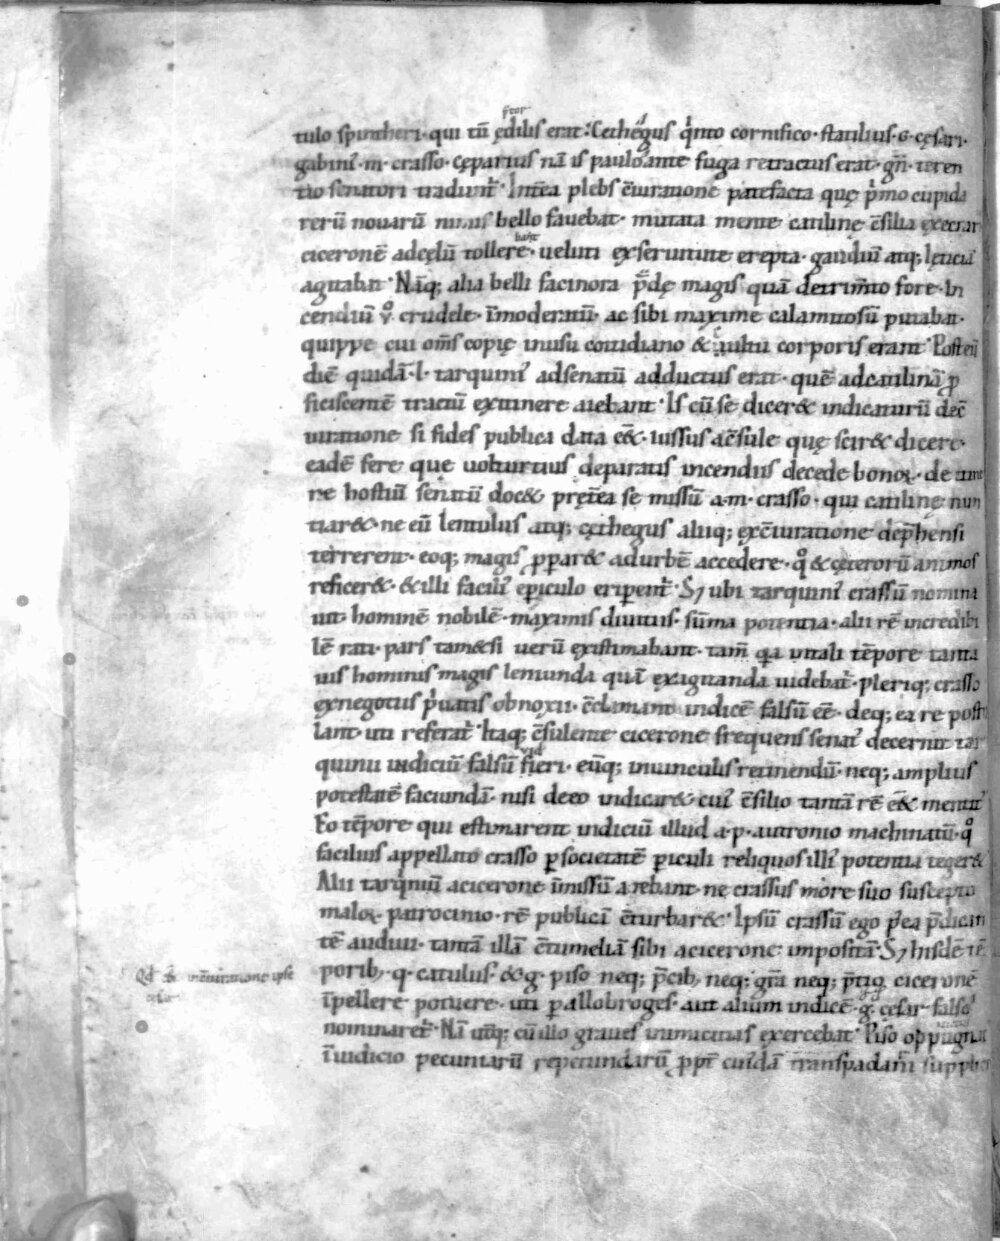 p̄tor
tulo spintheri· qui tū ędilis erat· Cęthegus q̍nto cornifico· statilius· G· cęsari·
gabini᾽· m· crasso· cęparius nā is paulo ante fuga retractus erat· gn̄· teren
tio senatori tradunt᾽· Int̄ea plebs c̄iuratione patefacta quę p̍mo cupida
rerū nouarū nimis bello fauebat· mutata mente catilinę c̄silia execrar
bant
ciceronē adcęlū tollere· ueluti exseruitute erepta· gaudiū atq; lęticiā
agitabat· Nāq; alia belli facinora p̄dę magis quā detrim̄to fore· In
cendiū ů crudele· īmoderatū· ac sibi maxime calamitosū putabat·
quippe cui om̄s copię inusu cottidiano & cultu corporis erant· Post eū
diē quidā· l· tarquini᾽ adsenatū adductus erat· quē adcatilinā p̱ro
ficiscentē tractū ex itinere aiebant· Is cū se dicer& indicaturū dec̄
iuratione si fides publica data e&· iussus ac̄sule quę scir& dicere·
eadē fere quę uolturtius deparatis incendiis decede bonoꝝ· de itine
re hostiū senatū doc& pręt̄ea se missū a· m· crasso· qui catilinę nun
tiar&· ne eū lentulus atq; cęthegus aliiq; exc̄iuratione dep̄hensi
terrerent· eoq; magis p̱roꝑar& adurbē accedere· q̊ & cęterorū animos
reficer&· & illi facili᾽ eꝑiculo eriꝑent᾽· S; ubi tarquini᾽ crassū nomina
uit· hominē nobilē· maximis diuitiis· sūma potentia· alii rē incredibi
lē rati· pars tam&si uerū existimabant· tam̄ q̍a intali tēpore tanta
uis hominis magis lenienda quā exagitanda uidebat᾽· pleriq; crasso
exnegotiis p̍uatis obnoxii· c̄clamant indicē falsū eē· deq; ea re postu
lant· uti referat᾽· Itaq; c̄sulente cicerone frequens senat᾽ decernit tar
uid
quinii indiciū falsū fieri· eūq; inuinculis retinendū· neq; amplius
potestatē faciundā· nisi deeo indicar& cui᾽ c̄silio tantā rē e&̄ mentit᾽
Eo tēpore qui estimarent indiciū illud a· p· autronio machinatū· q̊
facilius appellato crasso ꝑ societatē ꝑiculi reliquos illi᾽ potentia teger&
Alii tarq̍niū acicerone īmissū aiebant· ne crassus more suo suscepto
maloꝝ patrocinio· rē publicā c̄turbar&· Ipsū crassū ego p̍ea p̄dican
tē audiui· tantā illā c̄tumeliā sibi acicerone impositā· S; hisdē tē
porib; q· catulus· & g· piso neq; p̄cib; neq; gr̄a neq; p̄tio ciceronē
īpellere potuere· uti ꝑ allobroges· aut alium indicē· g· cesar falso
nominaret᾽· Nā ut̍q; cū illo graues inimicitias exercebat· Piso oppugnat
īiudicio pecuniarū repetundarū ꝓpt̄ cui᾽dā transpadani supplici
Qd̄ in c̄iuratione ipse
cęsar